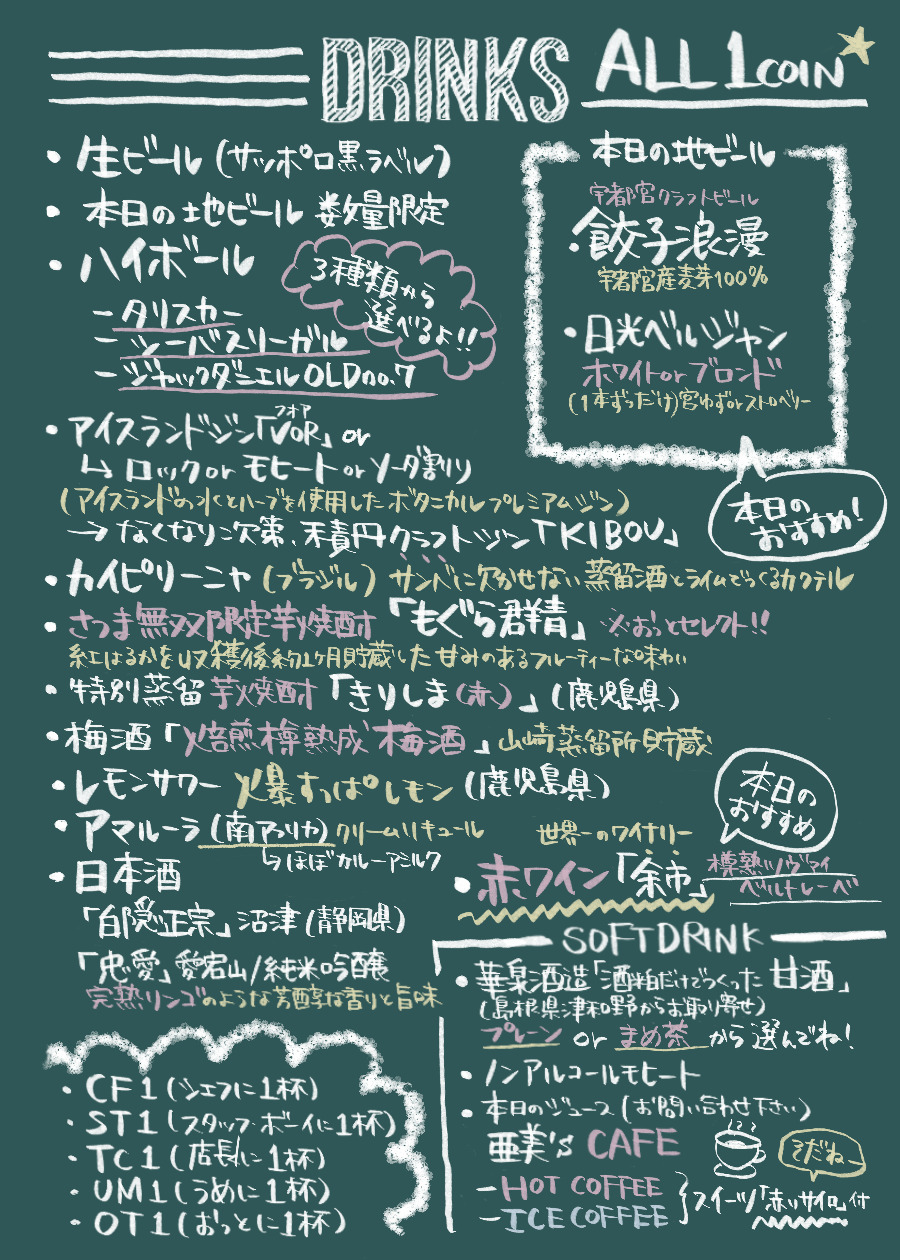 DRINKS ALL 1 COIN
・生ビール (サッポロ黒ラベル)
・本日の地ビール 数量限定
・ハイボール
3種類から
選べるよ!!
ータリスカー
ーシーバスリーガル
ージャックダニエル OLD no.7
本日の地ビール
宇都宮クラフトビール
・餃子浪漫
宇都宮産麦芽100%
・日光ベルジャン
ホワイト or ブロンド
(1本ずつだけ)宮ゆず or ストロベリー
本日の
おすすめ!
フォア
・アイスランドジン「VOR」or
↳ ロック or モヒート or ソーダ割り
(アイスランドの水とハーブを使用したボタニカルプレミアムジン)
→ なくなり次第、積丹クラフトジン「KIBOU」
・カイピリーニャ (ブラジル) サンバに欠かせない蒸留酒とライムでつくるカクテル
・さつま無双限定芋焼酎「もぐら群青」※おっとセレクト!!
紅はるかを収穫後約1ヶ月貯蔵した甘みのあるフルーティーな味わい
・特別蒸留芋焼酎「きりしま(赤)」(鹿児島県)
・梅酒「焙煎樽熟成梅酒」山崎蒸留所貯蔵
・レモンサワー 爆すっぱレモン (鹿児島県)
・アマルーラ (南アフリカ) クリームリキュール
↳ほぼカルーアミルク
本日の
おすすめ
世界一のワイナリー
・赤ワイン「余市」
樽熟ツヴァイ
ベルトレーベ
・日本酒
「白隠正宗」沼津 (静岡県)
「忠愛」愛宕山/純米吟醸
完熟リンゴのような芳醇な香りと旨味
SOFT DRINK
・華泉酒造「酒粕だけでつくった甘酒」
(島根県津和野からお取り寄せ)
プレーン or まめ茶 から選んでね!
・ノンアルコールモヒート
・本日のジュース (お問い合わせ下さい)
亜美's CAFE
そだねー
ーHOT COFFEE
ーICE COFFEE
スイーツ「赤いサイロ」付
・CF1 (シェフに1杯)
・ST1 (スタッフ・ボーイに1杯)
・TC1 (店長に1杯)
・UM1 (うめに1杯)
・OT1 (おっとに1杯)